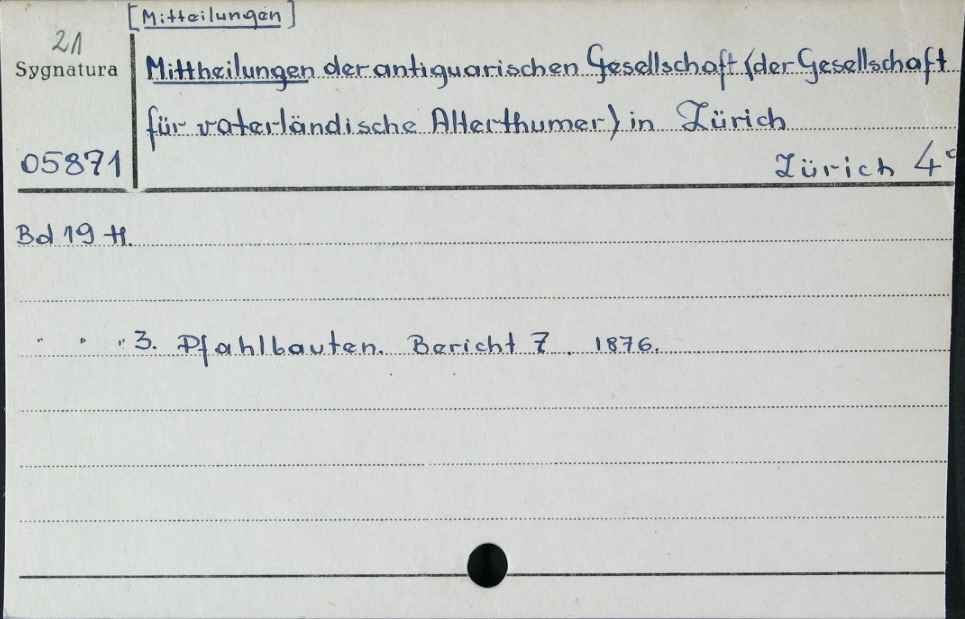 [Mitteilungen]
21
Sygnatura
Mittheilungen der antiquarischen Gesellschaft (der Gesellschaft
für vaterländische Alterthumer) in Zürich
05871
Zürich 4°
Bd 19 H.
" " " 3. Pfahlbauten. Bericht 7. 1876.